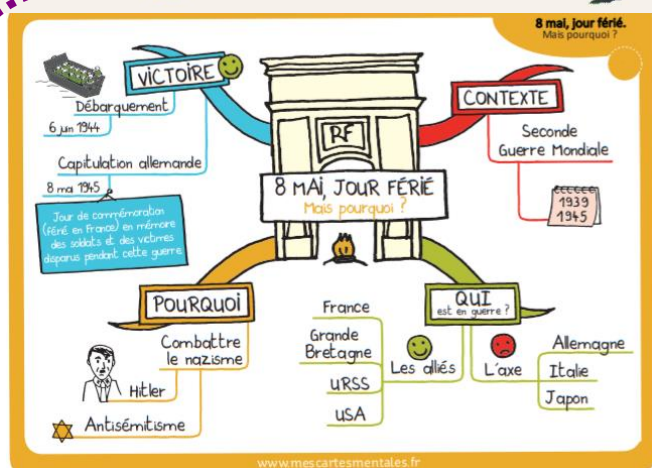 8 mai, jour férié.
Mais pourquoi ?
VICTOIRE
Débarquement
6 juin 1944
Capitulation allemande
8 mai 1945
Jour de commémoration
(férié en France) en mémoire
des soldats et des victimes
disparus pendant cette guerre
RF
8 MAI, JOUR FÉRIÉ
Mais pourquoi ?
CONTEXTE
Seconde
Guerre Mondiale
1939
1945
POURQUOI
Combattre
le nazisme
Hitler
Antisémitisme
QUI
est en guerre ?
Les alliés
France
Grande
Bretagne
URSS
USA
L'axe
Allemagne
Italie
Japon
www.mescartesmentales.fr